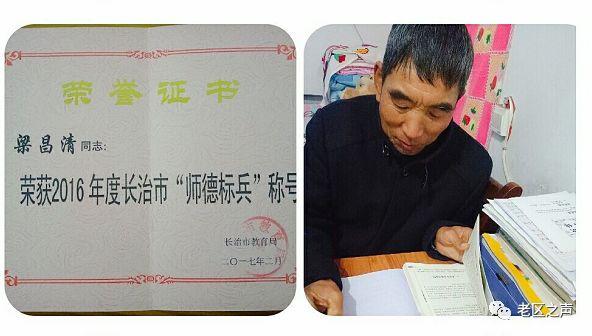 荣誉证书
梁昌清 同志:
荣获2016年度长治市“师德标兵”称号
长治市教育局
二〇一七年二月
老区之声